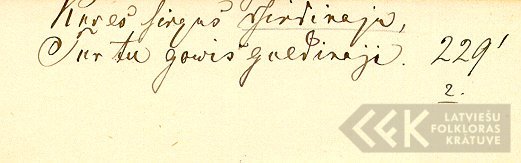 Kures sirgus dsirdinaja,
Tur tu gowis guldinaji. 229'
2.
LATVIEŠU
FOLKLORAS
KRĀTUVE